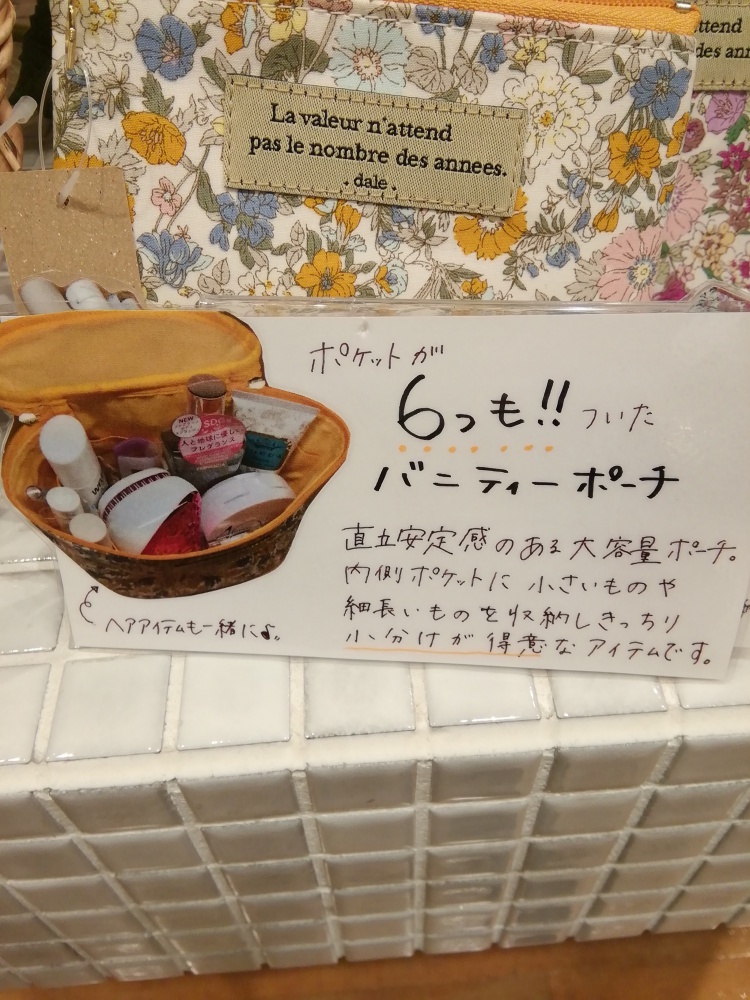 La valeur n'attend
pas le nombre des annees.
· dale ·
ttend
des ann
ポケットが
6つも!!ついた
バニティーポーチ
直立安定感のある大容量ポーチ。
内側ポケットに小さいものや
細長いものを収納しきっちり
小分けが得意なアイテムです。
ヘアアイテムも一緒に♪。
NEW
人と地球に優しい
フレグランス